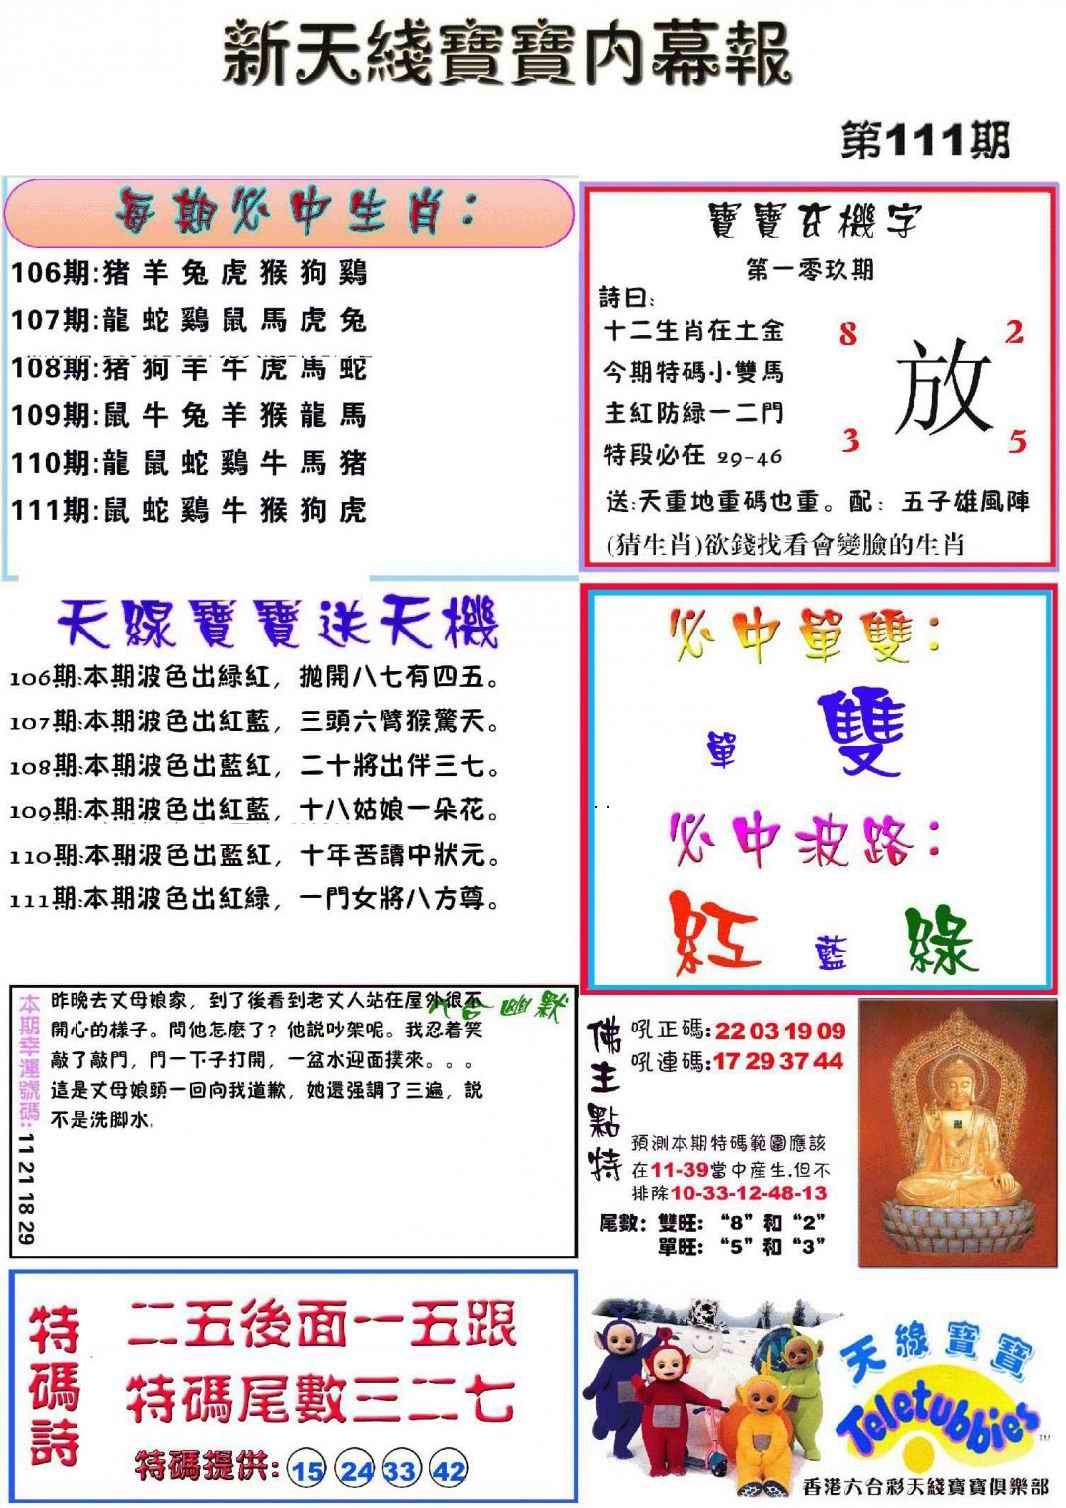 新天綫寶寶内幕報
第111期
每期必中生肖：
106期:猪羊兔虎猴狗鷄
107期:龍蛇鷄鼠馬虎兔
108期:猪狗羊牛虎馬蛇
109期:鼠牛兔羊猴龍馬
110期:龍鼠蛇鷄牛馬猪
111期:鼠蛇鷄牛猴狗虎
寶寶玄機字
第一零玖期
詩曰:
十二生肖在土金
今期特碼小雙馬
主紅防緑一二門
特段必在 29-46
8 2
放
3 5
送:天重地重碼也重。配：五子雄風陣
(猜生肖)欲錢找看會變臉的生肖
天線寶寶送天機
106期:本期波色出緑紅，拋開八七有四五。
107期:本期波色出紅藍，三頭六臂猴驚天。
108期:本期波色出藍紅，二十將出伴三七。
109期:本期波色出紅藍，十八姑娘一朵花。
110期:本期波色出藍紅，十年苦讀中狀元。
111期:本期波色出紅緑，一門女將八方尊。
必中單雙：
單 雙
必中波路：
紅 藍 綠
本期幸運號碼: 11 21 18 29
六合幽默
昨晚去丈母娘家，到了後看到老丈人站在屋外很不
開心的樣子。問他怎麽了？他説吵架呢。我忍着笑
敲了敲門，門一下子打開，一盆水迎面撲來。。。
這是丈母娘頭一回向我道歉，她還强調了三遍，説
不是洗脚水.
佛主點特
吼正碼:22 03 19 09
吼連碼:17 29 37 44
預測本期特碼範圍應該
在11-39當中産生.但不
排除10-33-12-48-13
尾數：雙旺：“8”和“2”
單旺：“5”和“3”
特碼詩
二五後面一五跟
特碼尾數三二七
特碼提供: 15 24 33 42
天線寶寶
Teletubbies
TM
香港六合彩天綫寶寶俱樂部